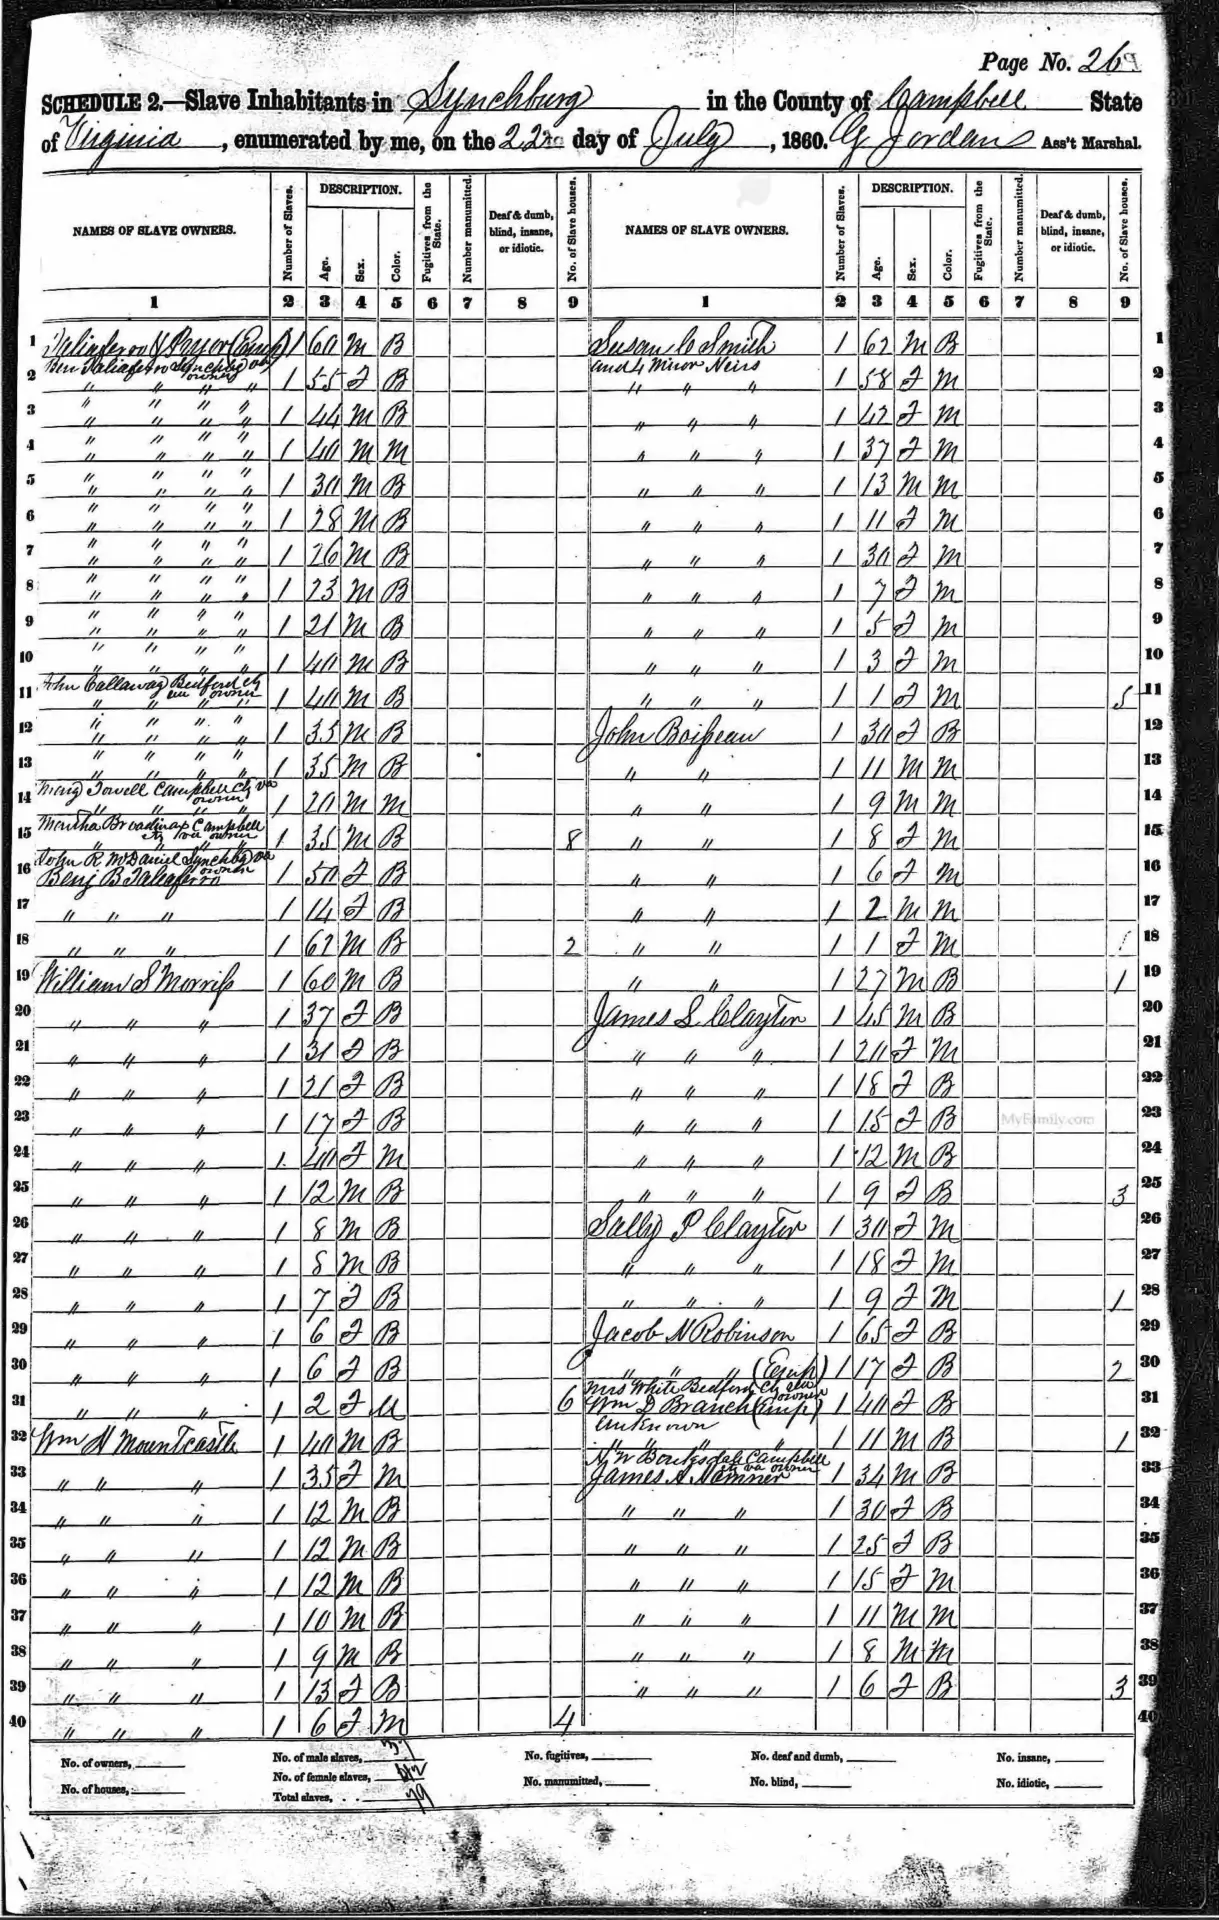 Page No. 26
SCHEDULE 2.—Slave Inhabitants in Lynchburg in the County of Campbell State
of Virginia, enumerated by me, on the 22nd day of July, 1860. G Jordan Ass't Marshal.
NAMES OF SLAVE OWNERS. Number of Slaves. DESCRIPTION. Age. Sex. Color. Fugitives from the State. Number manumitted. Deaf & dumb, blind, insane, or idiotic. No. of Slave houses. NAMES OF SLAVE OWNERS. Number of Slaves. DESCRIPTION. Age. Sex. Color. Fugitives from the State. Number manumitted. Deaf & dumb, blind, insane, or idiotic. No. of Slave houses.
1 2 3 4 5 6 7 8 9 1 2 3 4 5 6 7 8 9
1 Taliaferro & Pryor (Emp) 1 60 M B Susan C Smith 1 62 M B 1
Ben Taliaferro Lynchbg va owner and 4 Minor Heirs
2 " " " " 1 55 F B " " " 1 58 F M 2
3 " " " " 1 44 M B " " " 1 42 F M 3
4 " " " " 1 40 M M " " " 1 37 F M 4
5 " " " " 1 30 M B " " " 1 13 M M 5
6 " " " " 1 28 M B " " " 1 11 F M 6
7 " " " " 1 26 M B " " " 1 30 F M 7
8 " " " " 1 23 M B " " " 1 7 F M 8
9 " " " " 1 21 M B " " " 1 5 F M 9
10 " " " " 1 40 M B " " " 1 3 F M 10
John Callaway Bedford Cty va owner
11 " " " " 1 40 M B " " " 1 1 F M 5 11
12 " " " " 1 35 M B John 1 30 F B 12
13 " " " " 1 35 M B " " 1 11 M M 13
Campbell Cty va owner
14 " " " " 1 20 M M " " 1 9 M M 14
Martha Broadnax Campbell cty va owner
15 " " " " 1 35 M B 8 " " 1 8 F M 15
John R McDaniel Lynchbg va owner
16 Benj B Taliaferro 1 50 F B " " 1 6 F M 16
17 " " " 1 14 F B " " 1 2 M M 17
18 " " " 1 62 M B 2 " " 1 1 F M 18
19 William S Morriss 1 60 M B " " 1 27 M B 1 19
20 " " " 1 37 F B James S Clayton 1 45 M B 20
21 " " " 1 31 F B " " " 1 20 F M 21
22 " " " 1 21 F B " " " 1 18 F B 22
23 " " " 1 17 F B " " " 1 15 F B MyFamily.com 23
24 " " " 1 40 F M " " " 1 12 M B 24
25 " " " 1 12 M B " " " 1 9 F B 3 25
26 " " " 1 8 M B Sally P Clayton 1 30 F M 26
27 " " " 1 8 M B " " " 1 18 F M 27
28 " " " 1 7 F B " " " 1 9 F M 1 28
29 " " " 1 6 F B Jacob N Robinson 1 65 F B 29
30 " " " 1 6 F B " " " (Emp) 1 17 F B 2 30
Mrs White Bedford Cty va owner
31 " " " 1 2 F M 6 Wm D Branch (Emp) 1 40 F B 31
Unknown
32 Wm H Mountcastle 1 40 M B " " " " 1 11 M B 1 32
Campbell cty va owner
33 " " " 1 35 F M James A 1 34 M B 33
34 " " " 1 12 M B " " " 1 30 F B 34
35 " " " 1 12 M B " " " 1 25 F B 35
36 " " " 1 12 M B " " " 1 15 F M 36
37 " " " 1 10 M B " " " 1 11 M M 37
38 " " " 1 9 M B " " " 1 8 M M 38
39 " " " 1 13 F B " " " 1 6 F B 3 39
40 " " " 1 6 F M 4 40
No. of owners, No. of male slaves, 37 No. fugitives, No. deaf and dumb, No. insane,
No. of houses, No. of female slaves, 42 No. manumitted, No. blind, No. idiotic,
Total slaves, 79